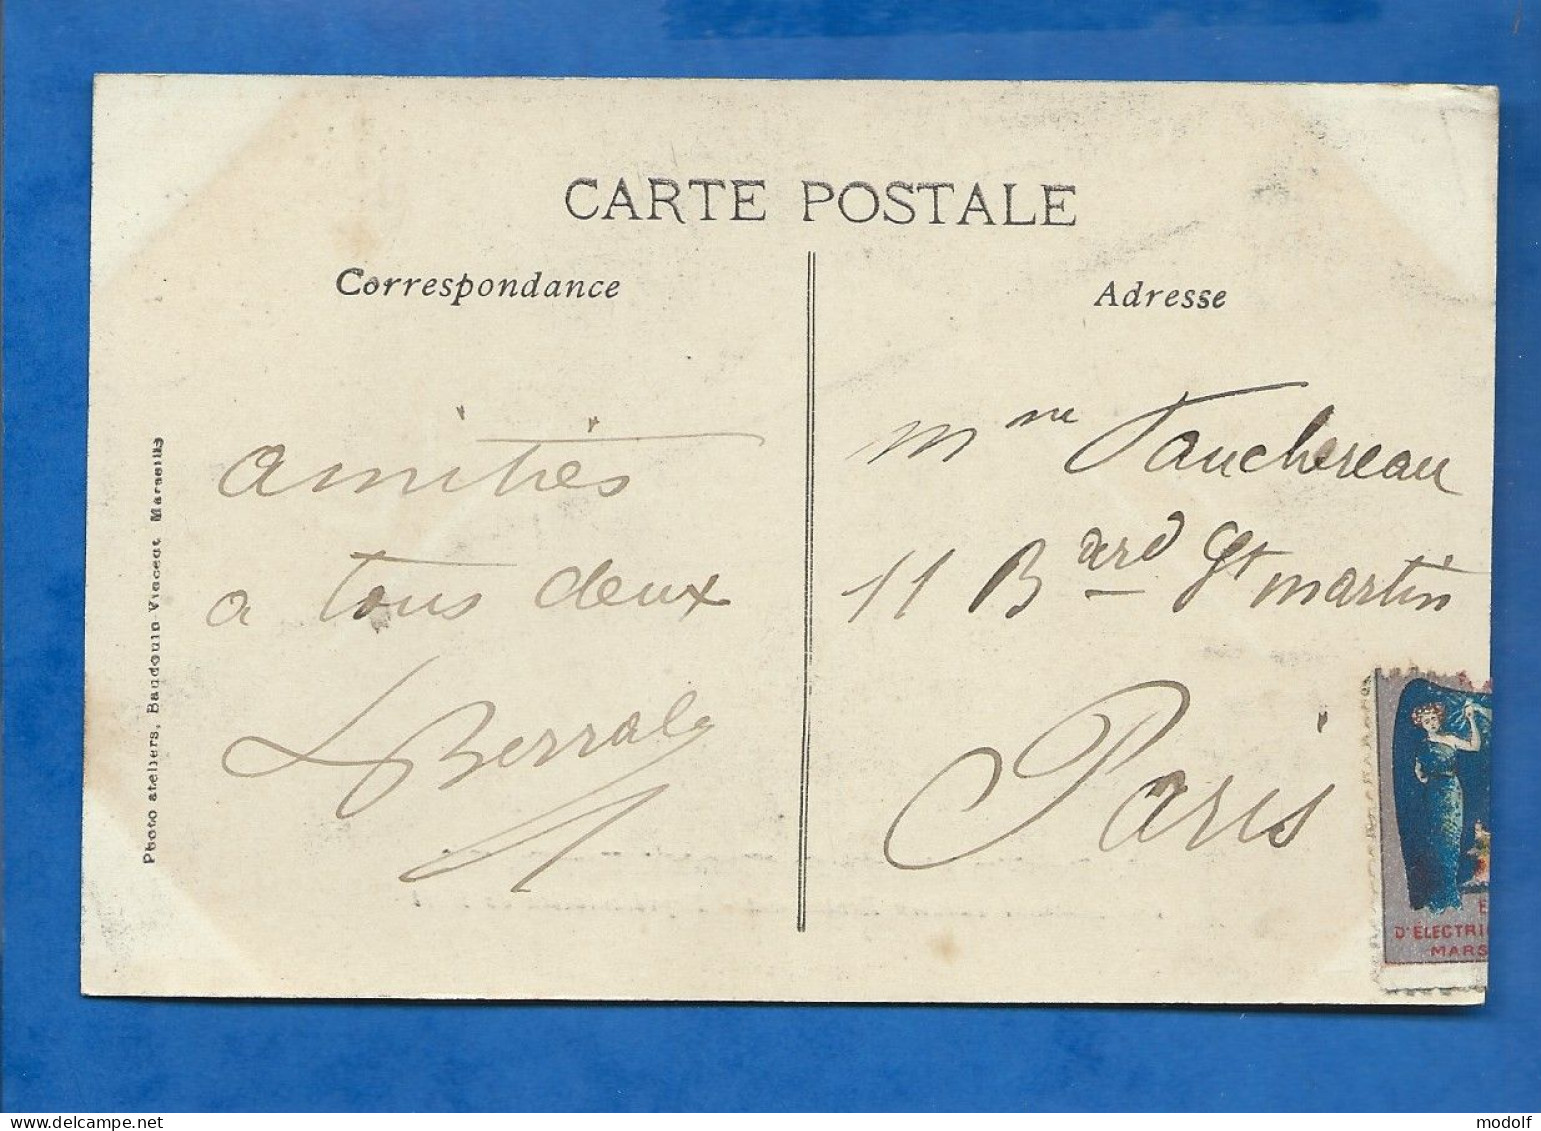 CARTE POSTALE
Correspondance
Adresse
amitiés
a tous deux
Photo ateliers, Baudouin-Vincent Marseille
Mme Fauchereau
11 Bard St martin
Paris
D'ELECTRI
MARS
www.delcampe.net
modolf